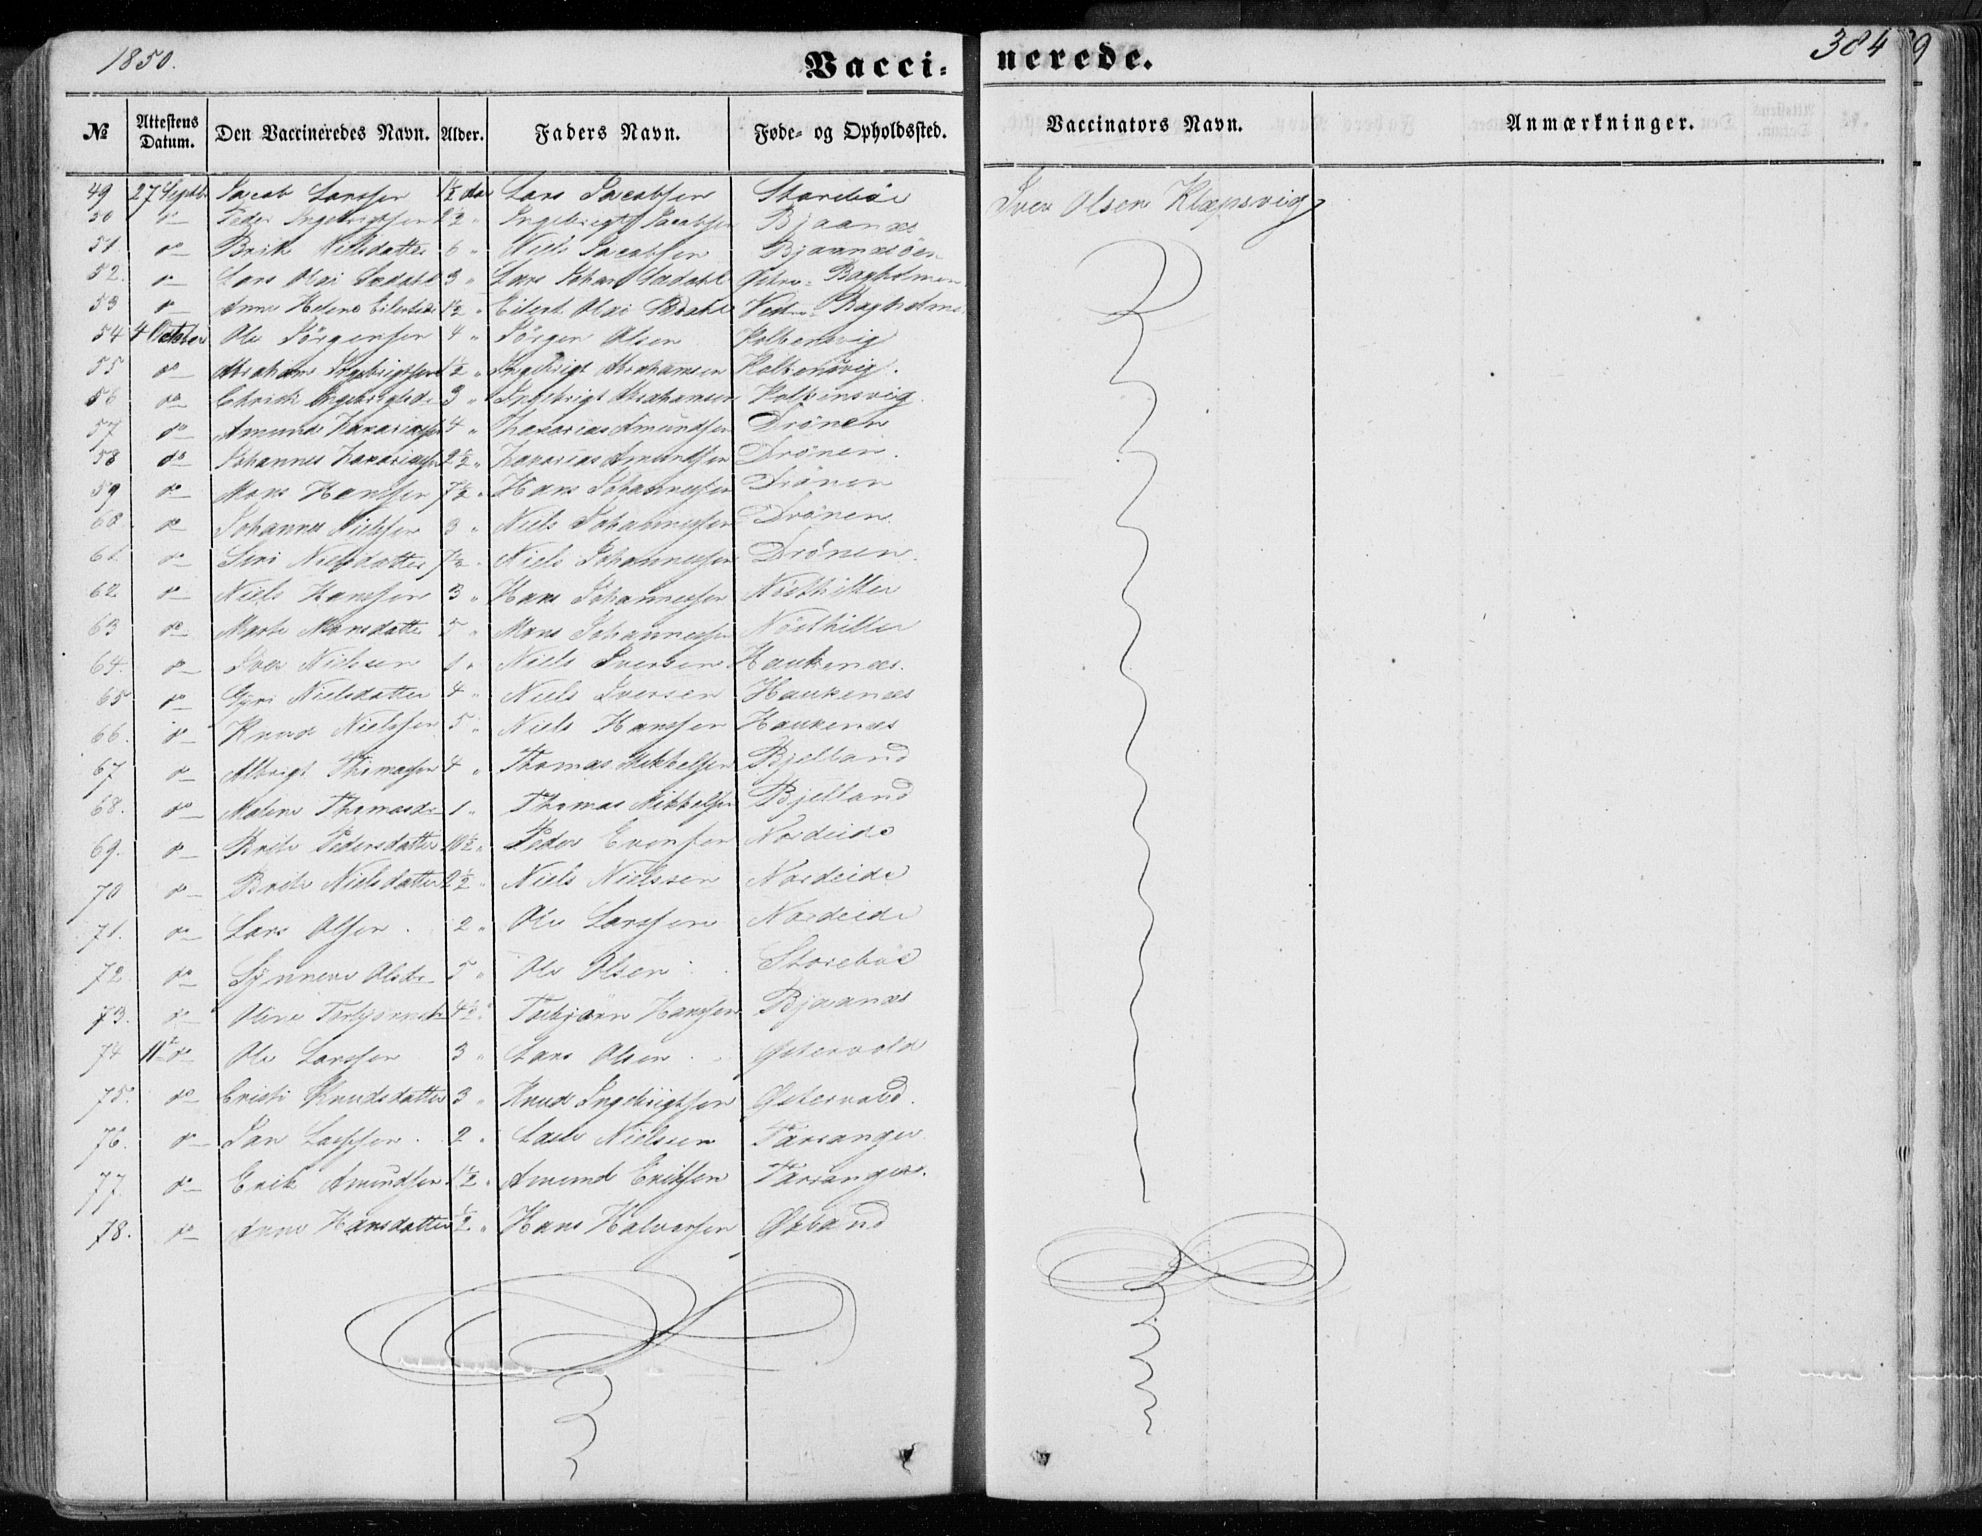 1850.
Vacci-
nerede.
384
9
№ Attestens Datum. Den Vaccineredes Navn. Alder. Faders Navn. Føde- og Opholdssted. Vaccinators Navn. Anmærkninger.
49 27 Septbr Jacob Larssen 1½ Aar Lars Jacobsen Storebøe Iver Olsen Klepsvig
50 do Peder Ingebrigtsen 2½ " Ingebrigt Jacobsen Bjaanæs
51 do Brite Nielsdatter 6 " Niels Jacobsen Bjaanæsöen
52. do Lars Olai 3 " Lars Johan Østre Bagholmen
53 do Anne Helene 1½ " Eilert Olai Vestre Bagholmen
54 4 October Ole Jörgensen 4 " Jörgen Olsen Kolbensvig
55 do Abraham Ingebrigtsen 1½ " Ingebrigt Abrahamsen Kolbensvig.
56 do Ingebrigtsd. 3 " Ingebrigt Abrahamsen Kolbensvig
57 do Amund Zakariasen 4 " Zakarias Amundsen Drönen
58 do Johannes Zakariasen 2½ " Zakarias Amundsen Drönen.
59 do Mons Hanssen 7½ " Hans Johannessen Drönen
60. do Johannes Nielssen 3 " Niels Johannessen Drönen
61. do Siri Nielsdatter Niels Johannessen Drönen.
62. do Niels Hanssen 3 " Hans Johannessen
63 do Marte Monsdatter 5 " Mons Johannessen
64. do Iver Nielssen 1 " Niels Iversen Haukenæs.
65 do Gjøri Nielsdatter 4 " Niels Iversen Haukenæs
66. do Knud Nielssen 5 " Niels Hanssen Haukenæs
67 do Albrigt Thomassen 4 " Thomas Mikkelsen Bjelland
68. do Malene Thomasd. 1 " Thomas Mikkelsen Bjelland
69. do Brite Pedersdatter 10½ " Peder Evensen Nordeide
70 do Brite Nielsdatter 2½ " Niels Nielssen Nordeide
71. do Lars Olsen. 2 " Ole Larssen Nordeide
72. do Synneve Olsdr 5 " Ole Olsen Storebøe
73. do Oline Torbjörnsd. 4½ " Torbjörn Hanssen Bjaanæs
74 11te do Ole Larssen 3 " Lars Olsen Østervold
75. do Cristi Knudsdatter 3 " Knud Ingebrigtsen Østervold.
76. do Jan Lassesen. 2 " Lasse Nielssen Tarranger
77. do Erik Amundsen 1½ " Amund Eriksen Tarranger.
78. do Anne Hansdatter ½ " Hans Halvorsen Øxland